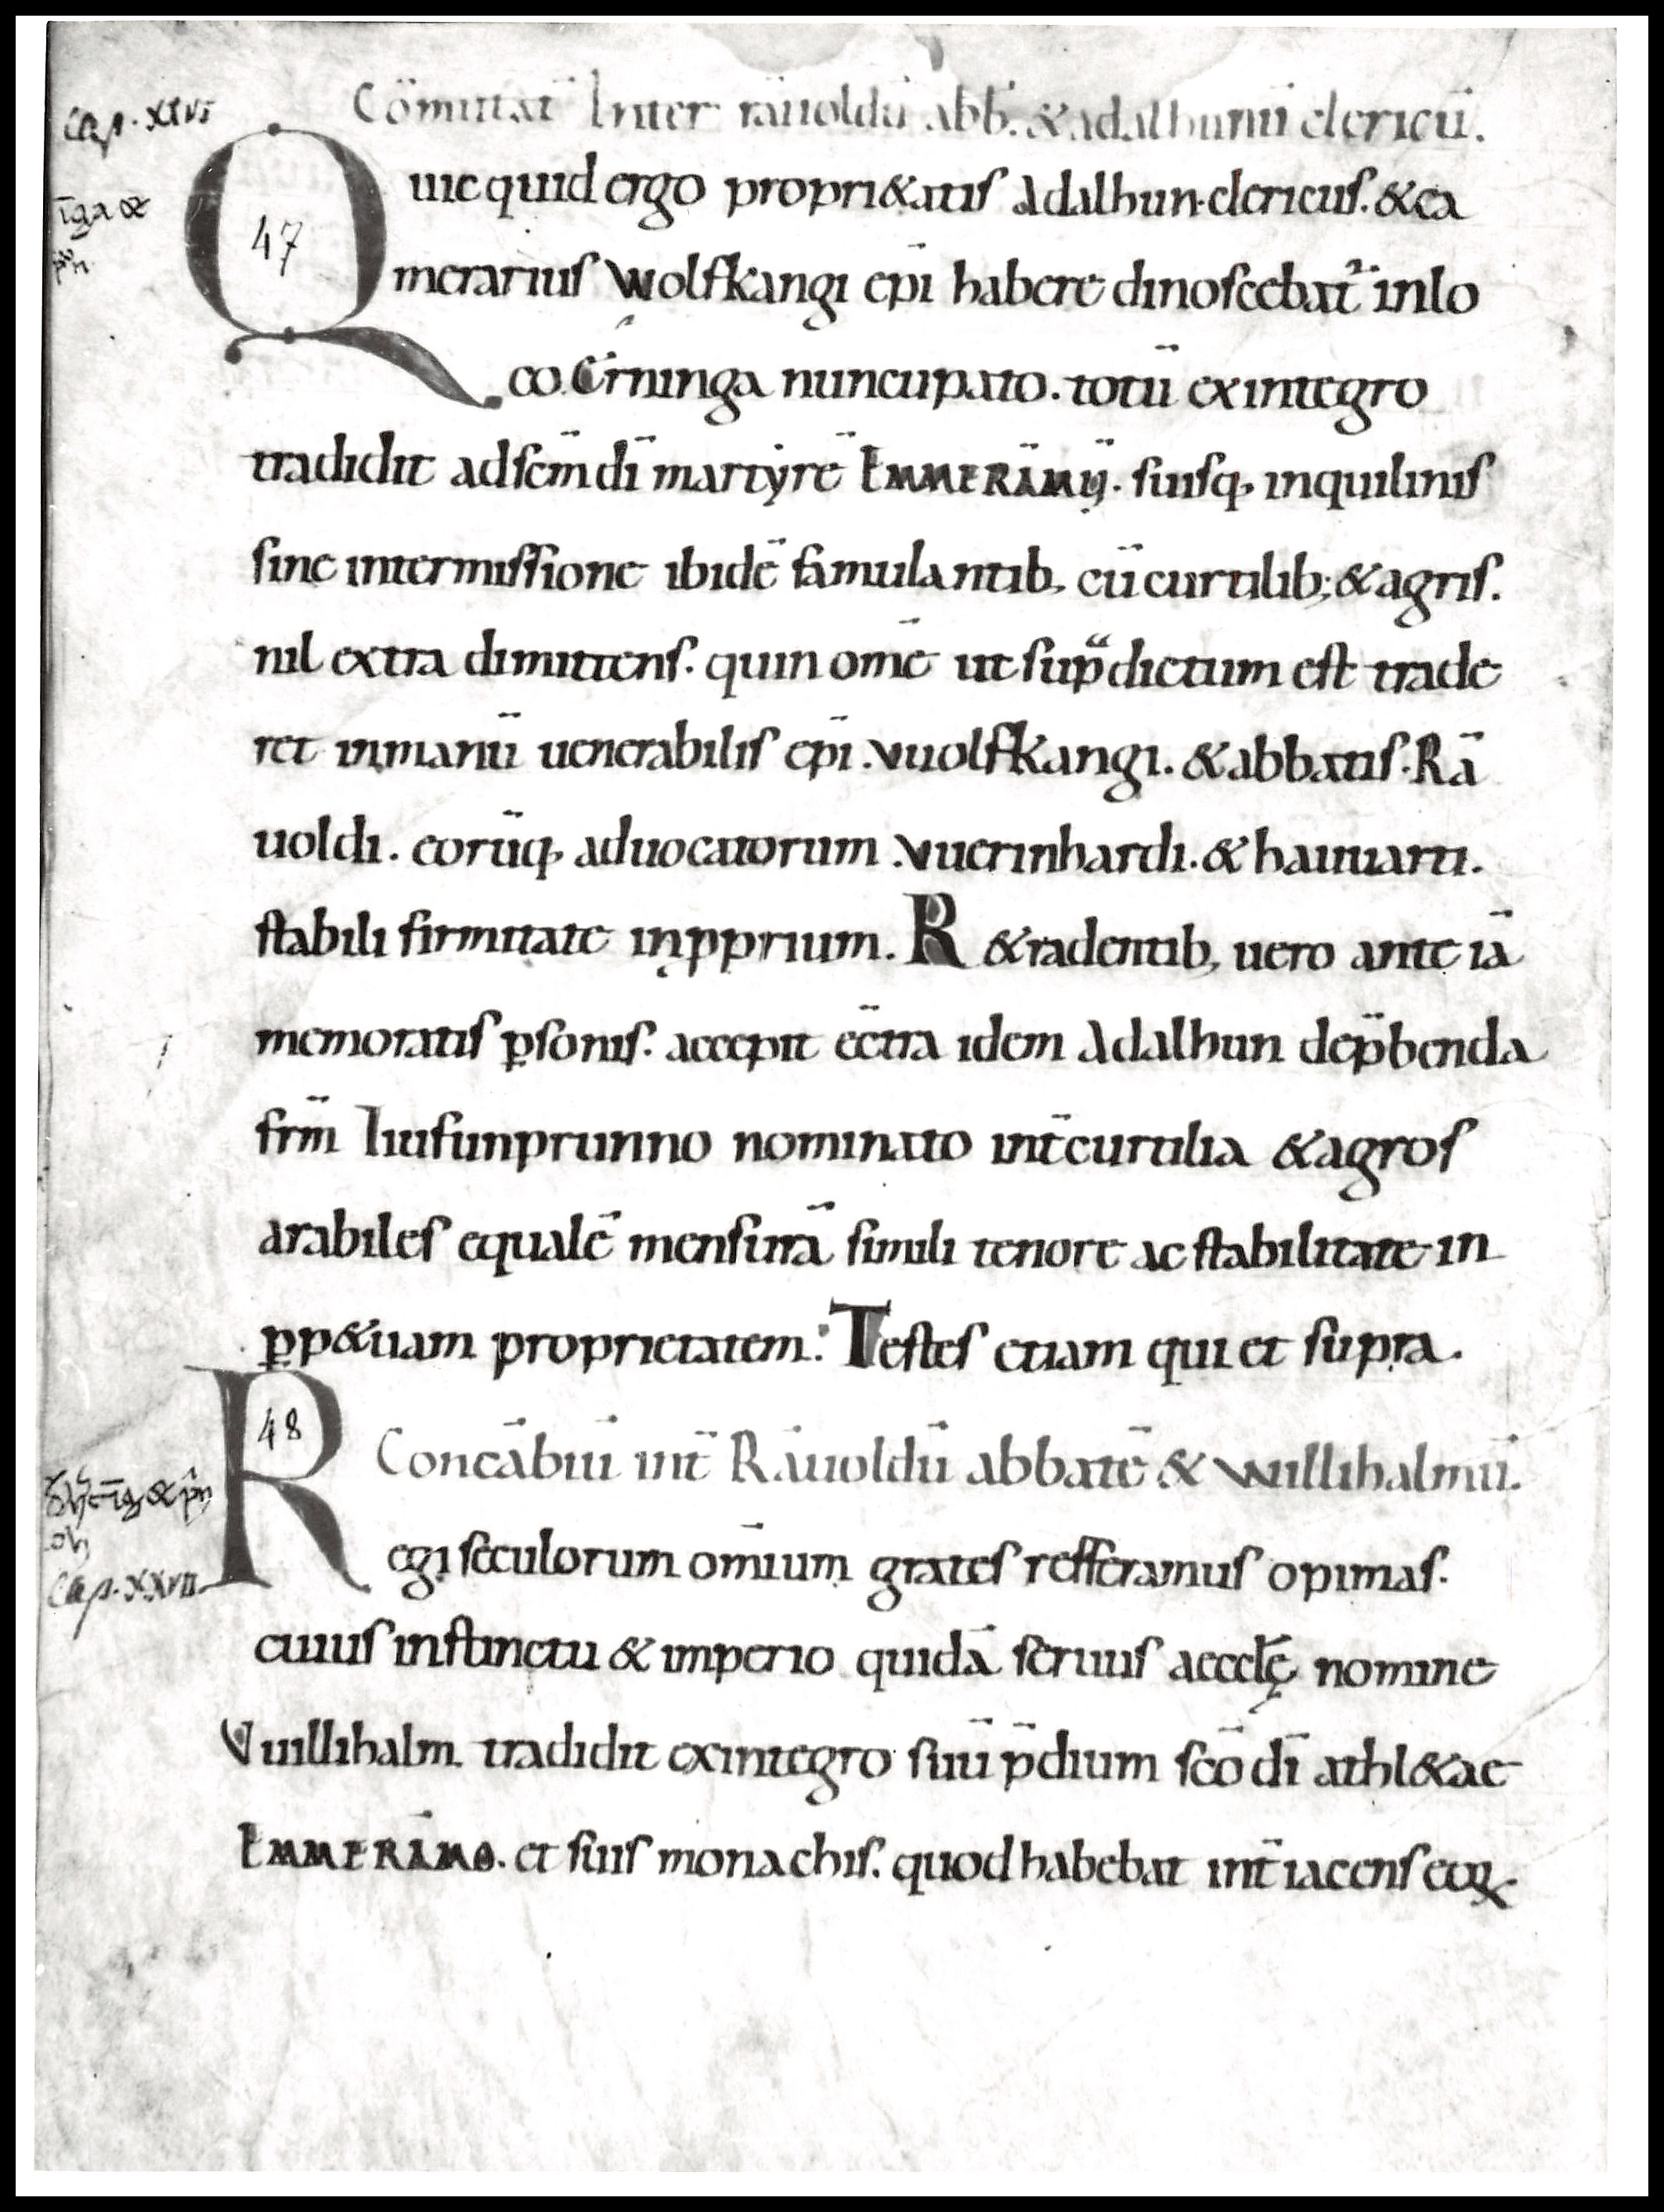 Cap. XXVI
Cōmutat̄ Inter rāuoldū abb̄. & adalhunū clericū.
Quicquid ergo propri&atis Adalhun clericus. & ca
47
merarius Wolfkangi ep̄i habere dinoscebat᷑ in lo
co. Erninga nuncupato. totū ex integro
tradidit ad sc̄m dī martyrē EMMERĀMŪ. suisq; inquilinis
sine intermissione ibidē famulantib; cū curtilib; & agris.
nil extra dimittens. quin om̄e ut sup̄dictum est trade
ret in manū uenerabilis ep̄i. Vuolfkangi. & abbatis. Rā
uoldi. eorūq; aduocatorum. Vuerinhardi. & hauuarti.
stabili firmitate in ꝓprium. R&radentib; uero ante iā
memoratis ꝑsonis. accepit ec̄tra idem Adalhun de p̄benda
fr̄m Liufunprunno nominato int̄ curtilia & agros
arabiles equalē mensurā simili tenore ac stabilitate in
ꝑp&uam proprietatem. Testes etiam qui et supra.
48
Concābiū int̄ Rāuoldū abbatē & Willihalmū.
Regi seculorum om̄ium grates refferamus opimas.
Cap. XXVII
cuius instinctu & imperio quidā seruus aeccl̄ę nomine
Vuillihalm tradidit ex integro suū p̄dium sc̄o dī athl&ae
EMMERĀMO. et suis monachis. quod habebat int̄iacens eoꝝ